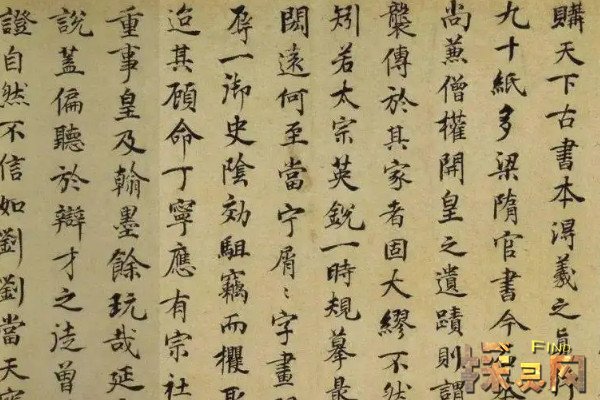 購天下古書本得羲之
九十紙多梁隋官書今
尚蕪僧權開皇之遺蹟則謂
襲傳於其家者固大繆不然
矧若太宗英銳一時規摹最
閎遠何至當宁屑〻字畫
辱一御史陰効駔竊而攫
迨其顧命丁寧應有宗社
重事皇及翰墨餘玩哉延
說蓋偏聽於辯才之徒曾
證自然不信如劉劉當天
探灵网
FIND